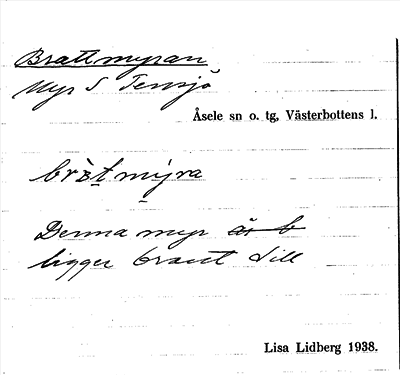 Brattmyran
Myr S Tensjö
Åsele sn o. tg, Västerbottens l.
Denna myr ~~är b~~
ligger brant till
Lisa Lidberg 1938.